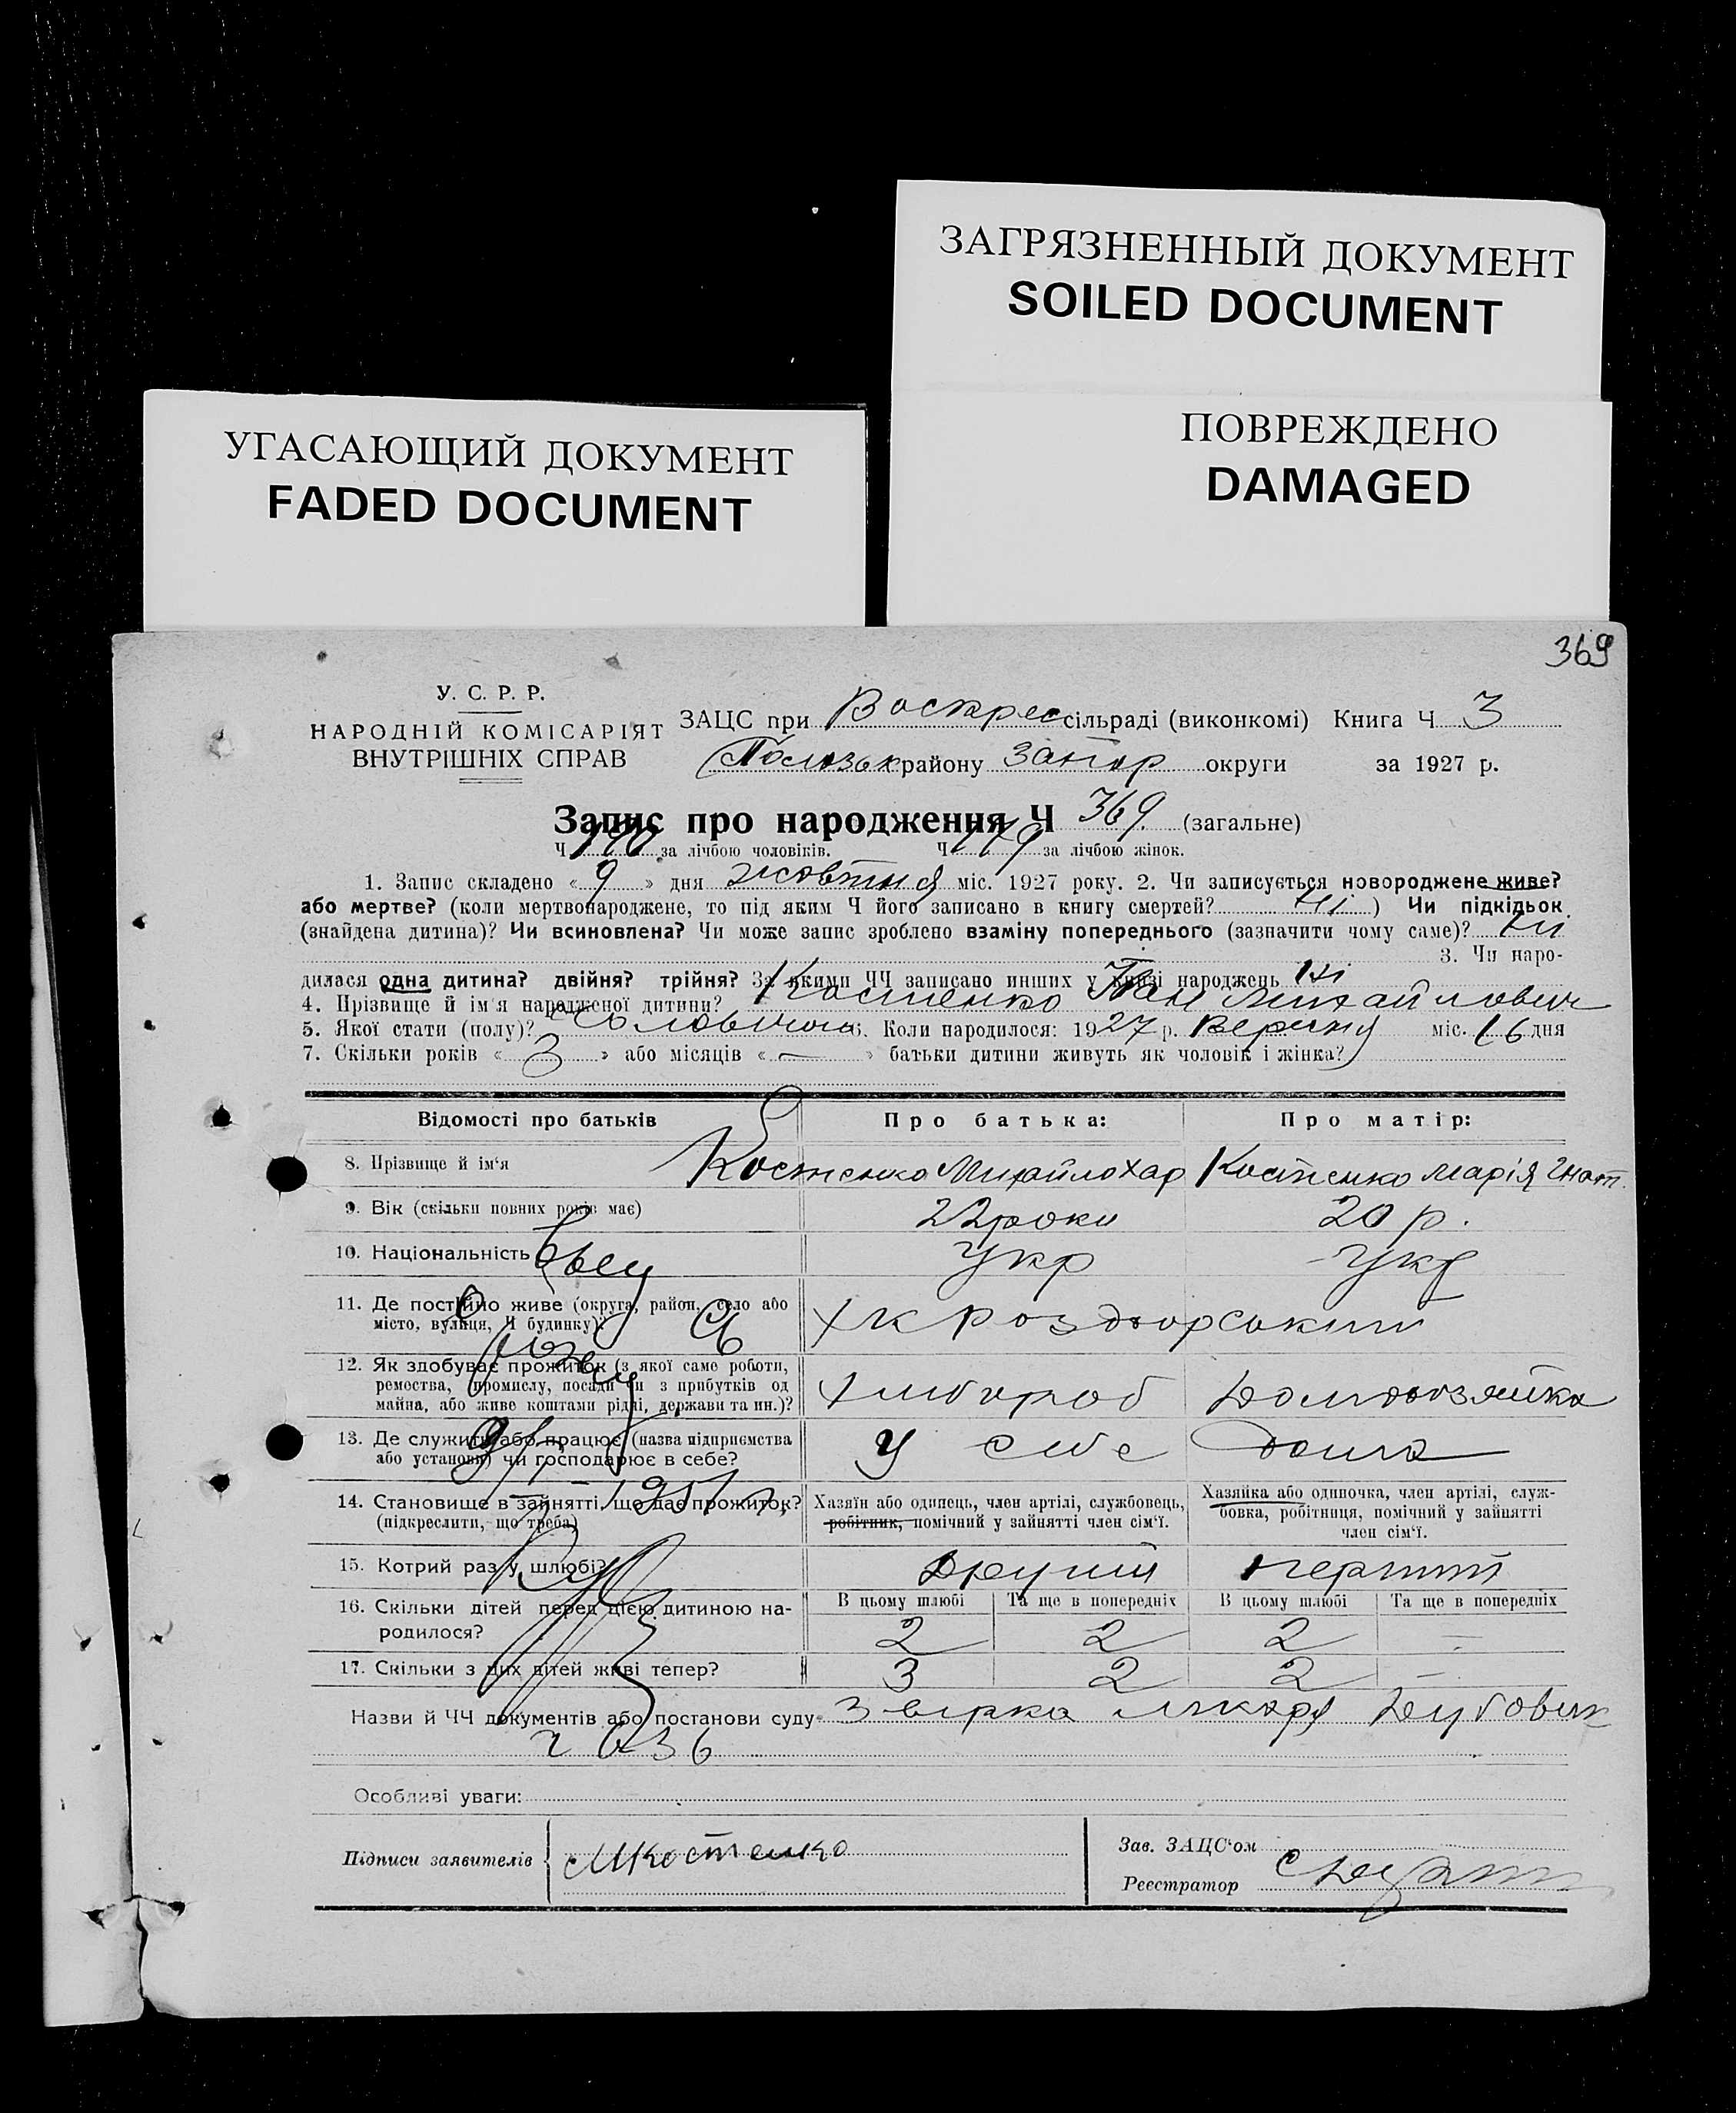 ЗАГРЯЗНЕННЫЙ ДОКУМЕНТ
SOILED DOCUMENT
УГАСАЮЩИЙ ДОКУМЕНТ
FADED DOCUMENT
ПОВРЕЖДЕНО
DAMAGED
369
У. С. Р. Р.
НАРОДНІЙ КОМІСАРІЯТ
ВНУТРІШНІХ СПРАВ
ЗАЦС при Воскрес сільраді (виконкомі) Книга Ч 3
Пологівськ району Запор округи за 1927 р.
Запис про народження Ч 369. (загальне)
Ч 190 за лічбою чоловіків. Ч 179 за лічбою жінок.
1. Запис складено « 9 » дня жовтня міс. 1927 року. 2. Чи записується новороджене живе?
або мертве? (коли мертвонароджене, то під яким Ч його записано в книгу смертей? Ні ) Чи підкідьок
(знайдена дитина)? Чи всиновлена? Чи може запис зроблено взаміну попереднього (зазначити чому саме)? Ні
3. Чи наро-
дилася одна дитина? двійня? трійня? За якими ЧЧ записано инших у книзі народжень Ні
4. Прізвище й ім'я народженої дитини? Костенко Іван Михайлович
5. Якої стати (полу)? Чоловіча 6. Коли народилося: 1927 р. Вересня міс. 16 дня
7. Скільки років « 3 » або місяців « — » батьки дитини живуть як чоловік і жінка?
Відомості про батьків Про батька: Про матір:
8. Прізвище й ім'я Костенко Михайло Хар Костенко Марія Гнат.
9. Вік (скільки повних років має) 22 роки 20 р.
10. Національність Укр Укр
11. Де постійно живе (округа, район, село або
місто, вулиця, Ч будинку)?
12. Як здобуває прожиток (з якої саме роботи,
ремества, промислу, посади чи з прибутків од
майна, або живе коштами рідні, держави та ин.)? Хлібороб Домохозяйка
13. Де служить або працює (назва підприємства
або установи) чи господарює в себе? У себе дома
14. Становище в занятті, що дає прожиток?
(підкреслити, що треба)
Хазяїн або одинець, член артілі, службовець,
робітник, помічний у зайнятті член сім'ї.
Хазяйка або одиночка, член артілі, служ-
бовка, робітниця, помічний у зайнятті
член сім'ї.
1951 г.
15. Котрий раз у шлюбі? Другий перший
16. Скільки дітей перед цією дитиною на-
родилося?
В цьому шлюбі Та ще в попередніх В цьому шлюбі Та ще в попередніх
2 2 2 —
17. Скільки з цих дітей живі тепер? 3 2 2 —
Назви й ЧЧ документів або постанови суду
Особливі уваги:
Підписи заявителів М Костенко
Зав. ЗАЦС'ом
Реєстратор